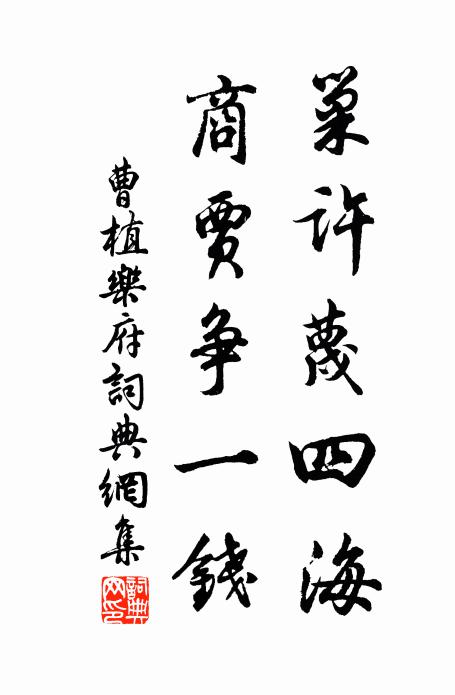 巢許蔑四海
商賈争一錢
曹植樂府詞典網集
詞典网印